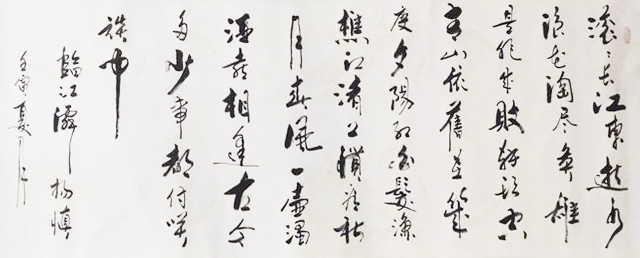 滚々长江東逝水
浪花淘尽英雄
是非成敗转頭空
青山依舊在幾
度夕陽红白髮渔
樵江渚上惯看秋
月春风一壺濁
酒喜相逢古今
多少事都付咲
談中
臨江僊 杨慎
壬寅夏月